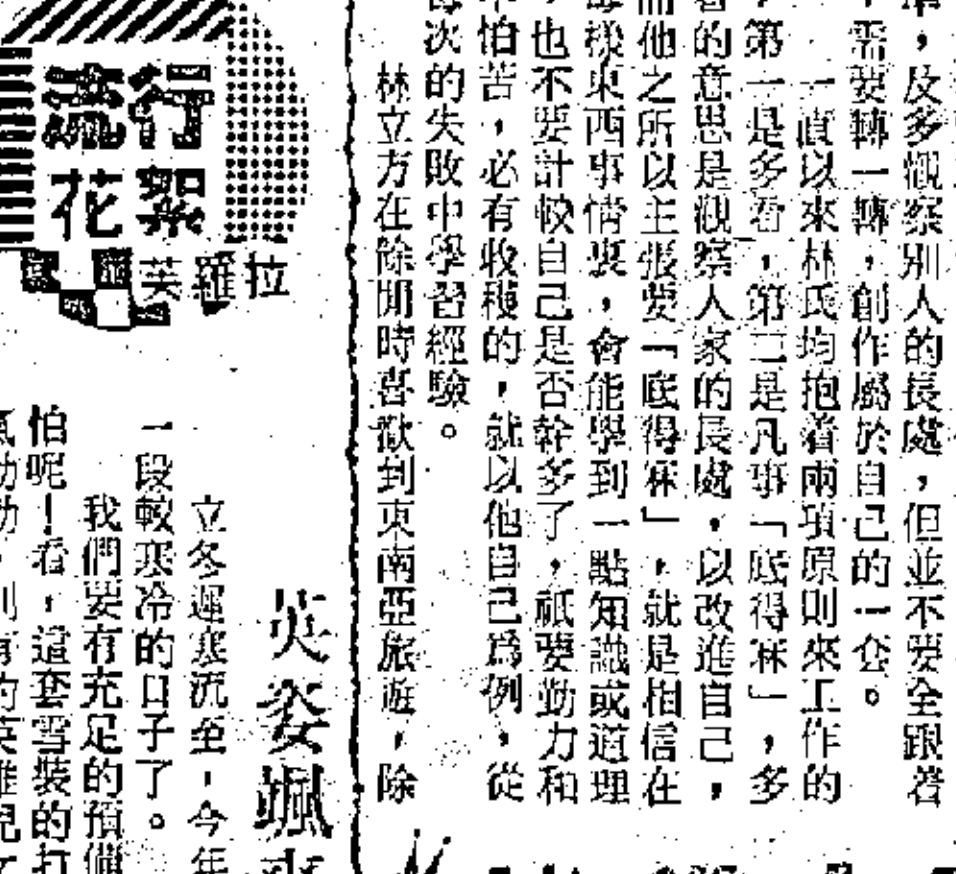 準，及多觀察別人的長處，但並不要全跟着
，需要轉一轉，創作屬於自己的一套。
一直以來林氏均抱着兩項原則來工作的
，第一是多看，第二是凡事「底得麻」，多
看的意思是觀察人家的長處，以改進自己，
而他之所以主張要「底得麻」，就是相信在
每樣東西事情裏，會能學到一點知識或道理
，也不要計較自己是否幹多了，祇要勤力和
不怕苦，必有收穫的，就以他自己爲例，從
每次的失敗中學習經驗。
林立方在除閒時喜歡到東南亞旅遊，除
流行
花絮
芙蘿拉
英姿颯爽
立冬遲寒流至，今年
一段較寒冷的日子了。
我們要有充足的預備
怕呢！看，這套雪裝的打